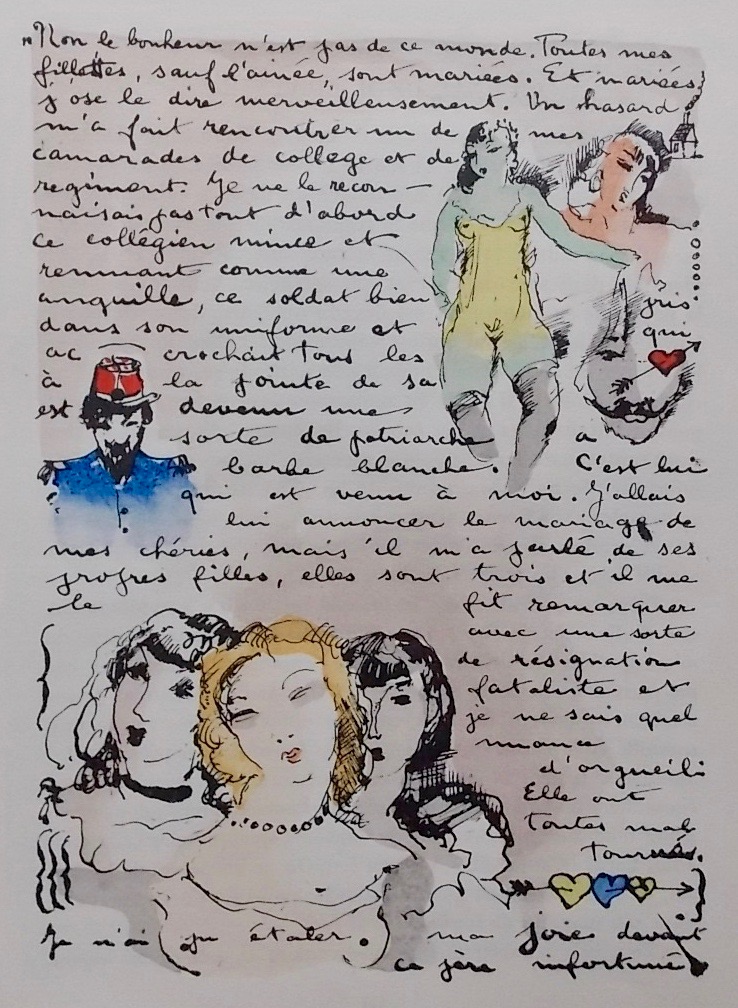 "Non le bonheur n'est pas de ce monde. Toutes mes
fillettes, sauf l'ainée, sont mariées. Et mariées,
j'ose le dire merveilleusement. Un hasard
m'a fait rencontrer un de mes
camarades de collège et de
regiment. Je ne le recon-
naisais pas tout d'abord
ce collégien mince et
remuant comme une
anguille, ce soldat bien
pris
dans son uniforme et
qui
ac crochait tous les
à la pointe de sa
est devenu une
sorte de patriarche a
barbe blanche. C'est lui
qui est venu à moi. J'allais
lui annoncer le mariage de
mes chéries, mais il m'a parlé de ses
propres filles, elles sont trois et il me
le fit remarquer
avec une sorte
de résignation
fataliste et
je ne sais quel
nuance
d'orgueil:
Elle ont
toutes mal
tournés.
Je n'ai pu étaler ma joie devant
ce père infortuné